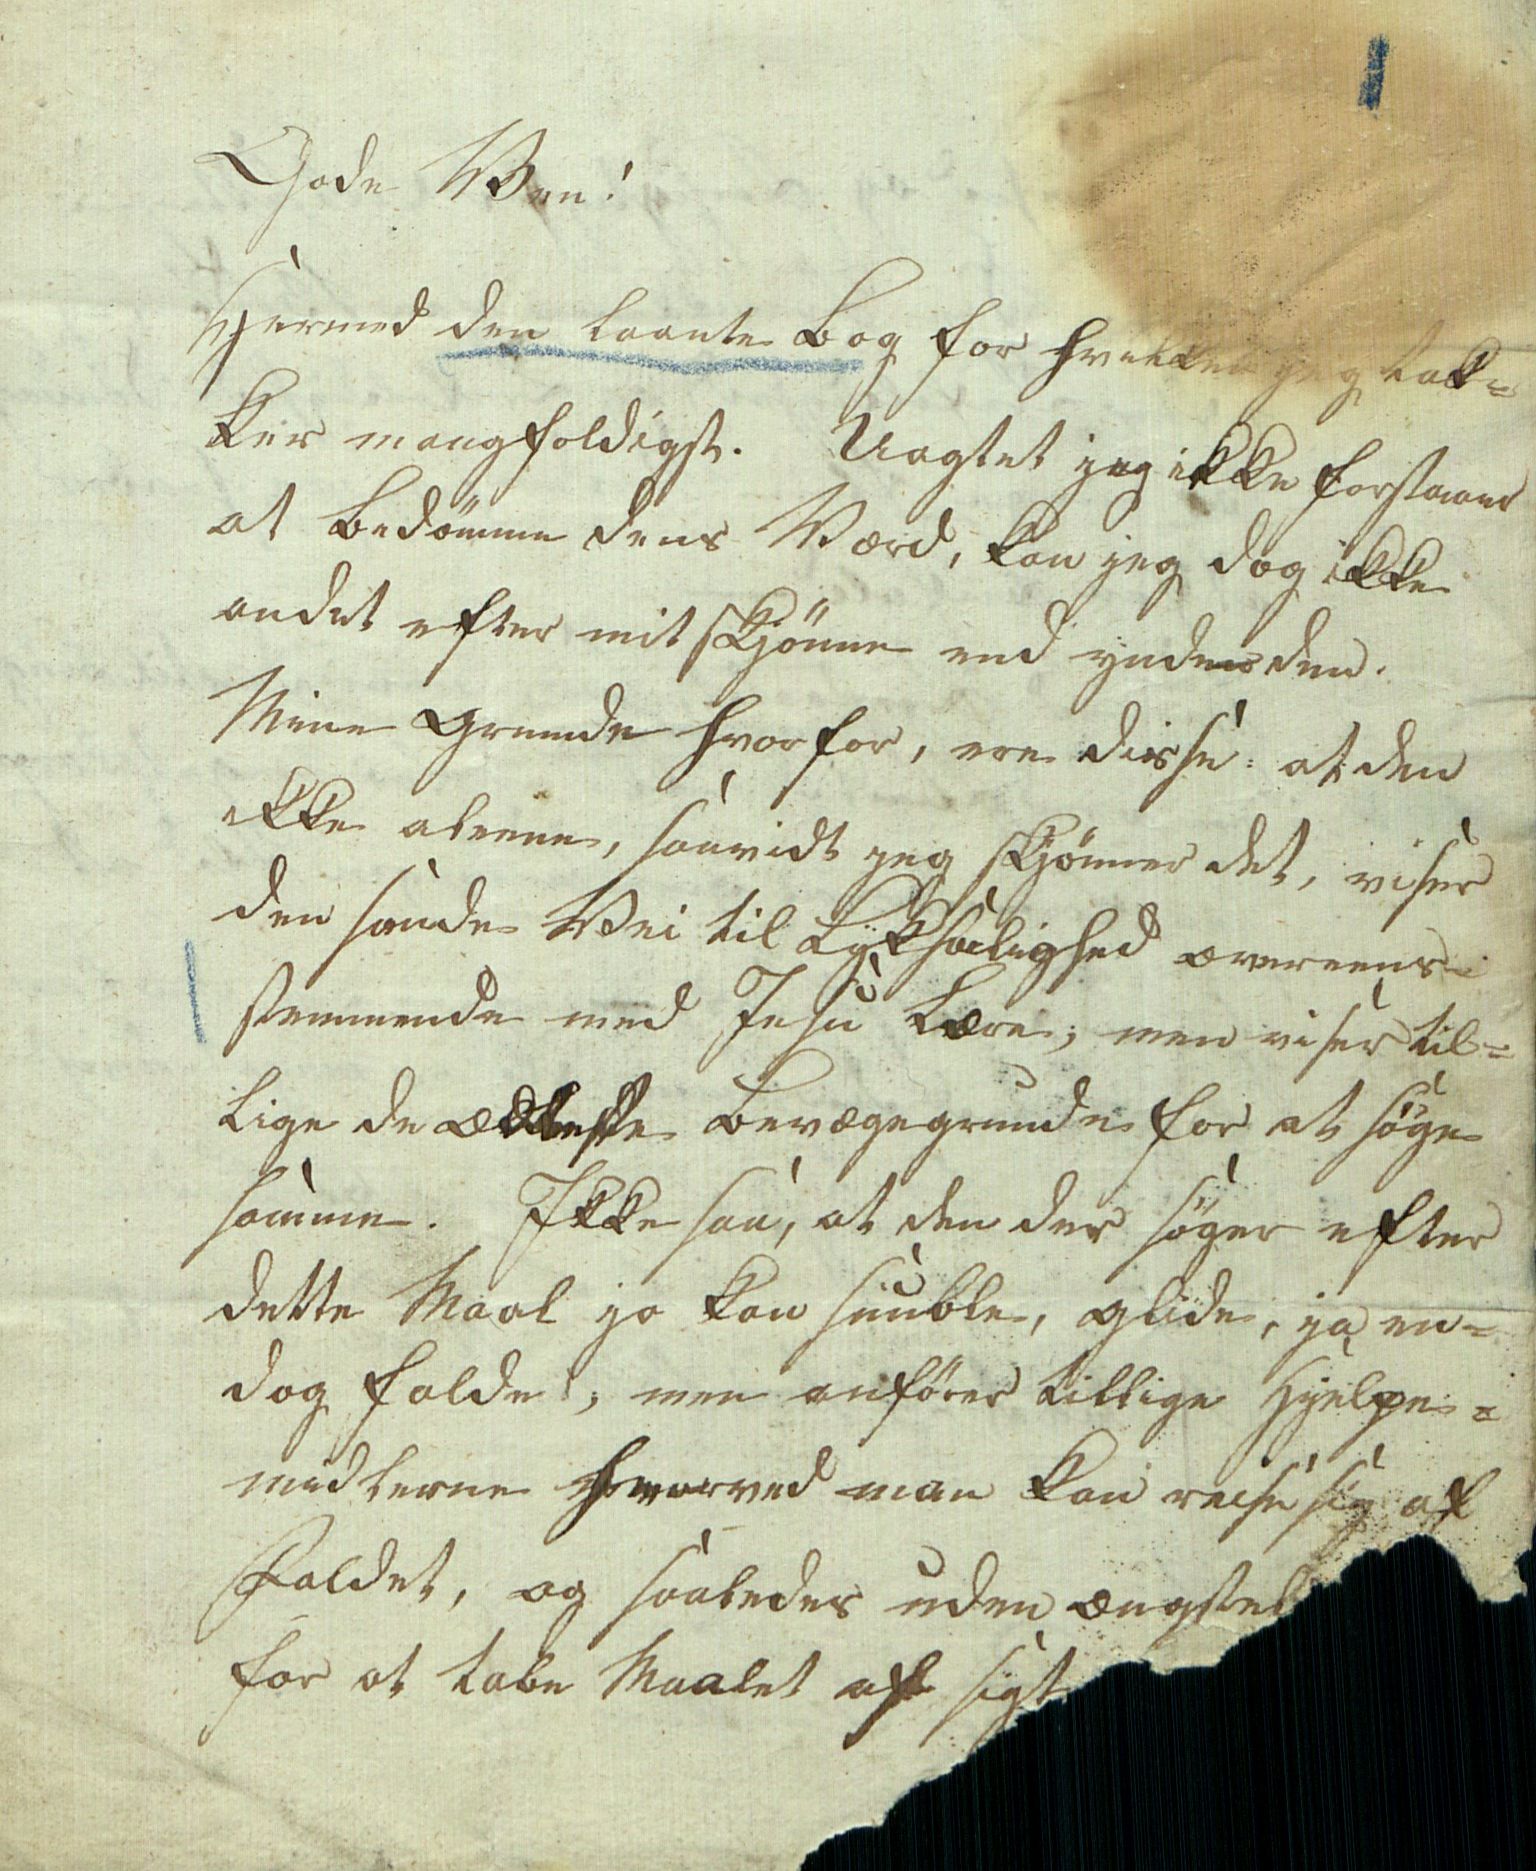 Gode Ven!
Hjermed den laante Bog for hvilken jeg tak=
ker mangfoldigst. Uagtet jeg ikke forstaaer
at bedömme dens Værd, kan jeg dog ikke
andet efter mit skjönne end ynde den.
Mine Grunde hvorfor, ere disse: at den
ikke aleene, saavidt jeg skjönner det, viser
den sande Vei til Lyksalighed overeens-
stemmende med Jesu Lære; men viser til=
lige de ædleste Bevægegrunde for at söge
samme. Ikke saa, at den der söger efter
dette Maal jo kan snuble, glide, ja en=
dog falde; men anförer tillige Hjelpe=
midlerne hvorved man kan reise sig af
Faldet, og saaledes uden ængstel
for at tabe Maalet af Sigt